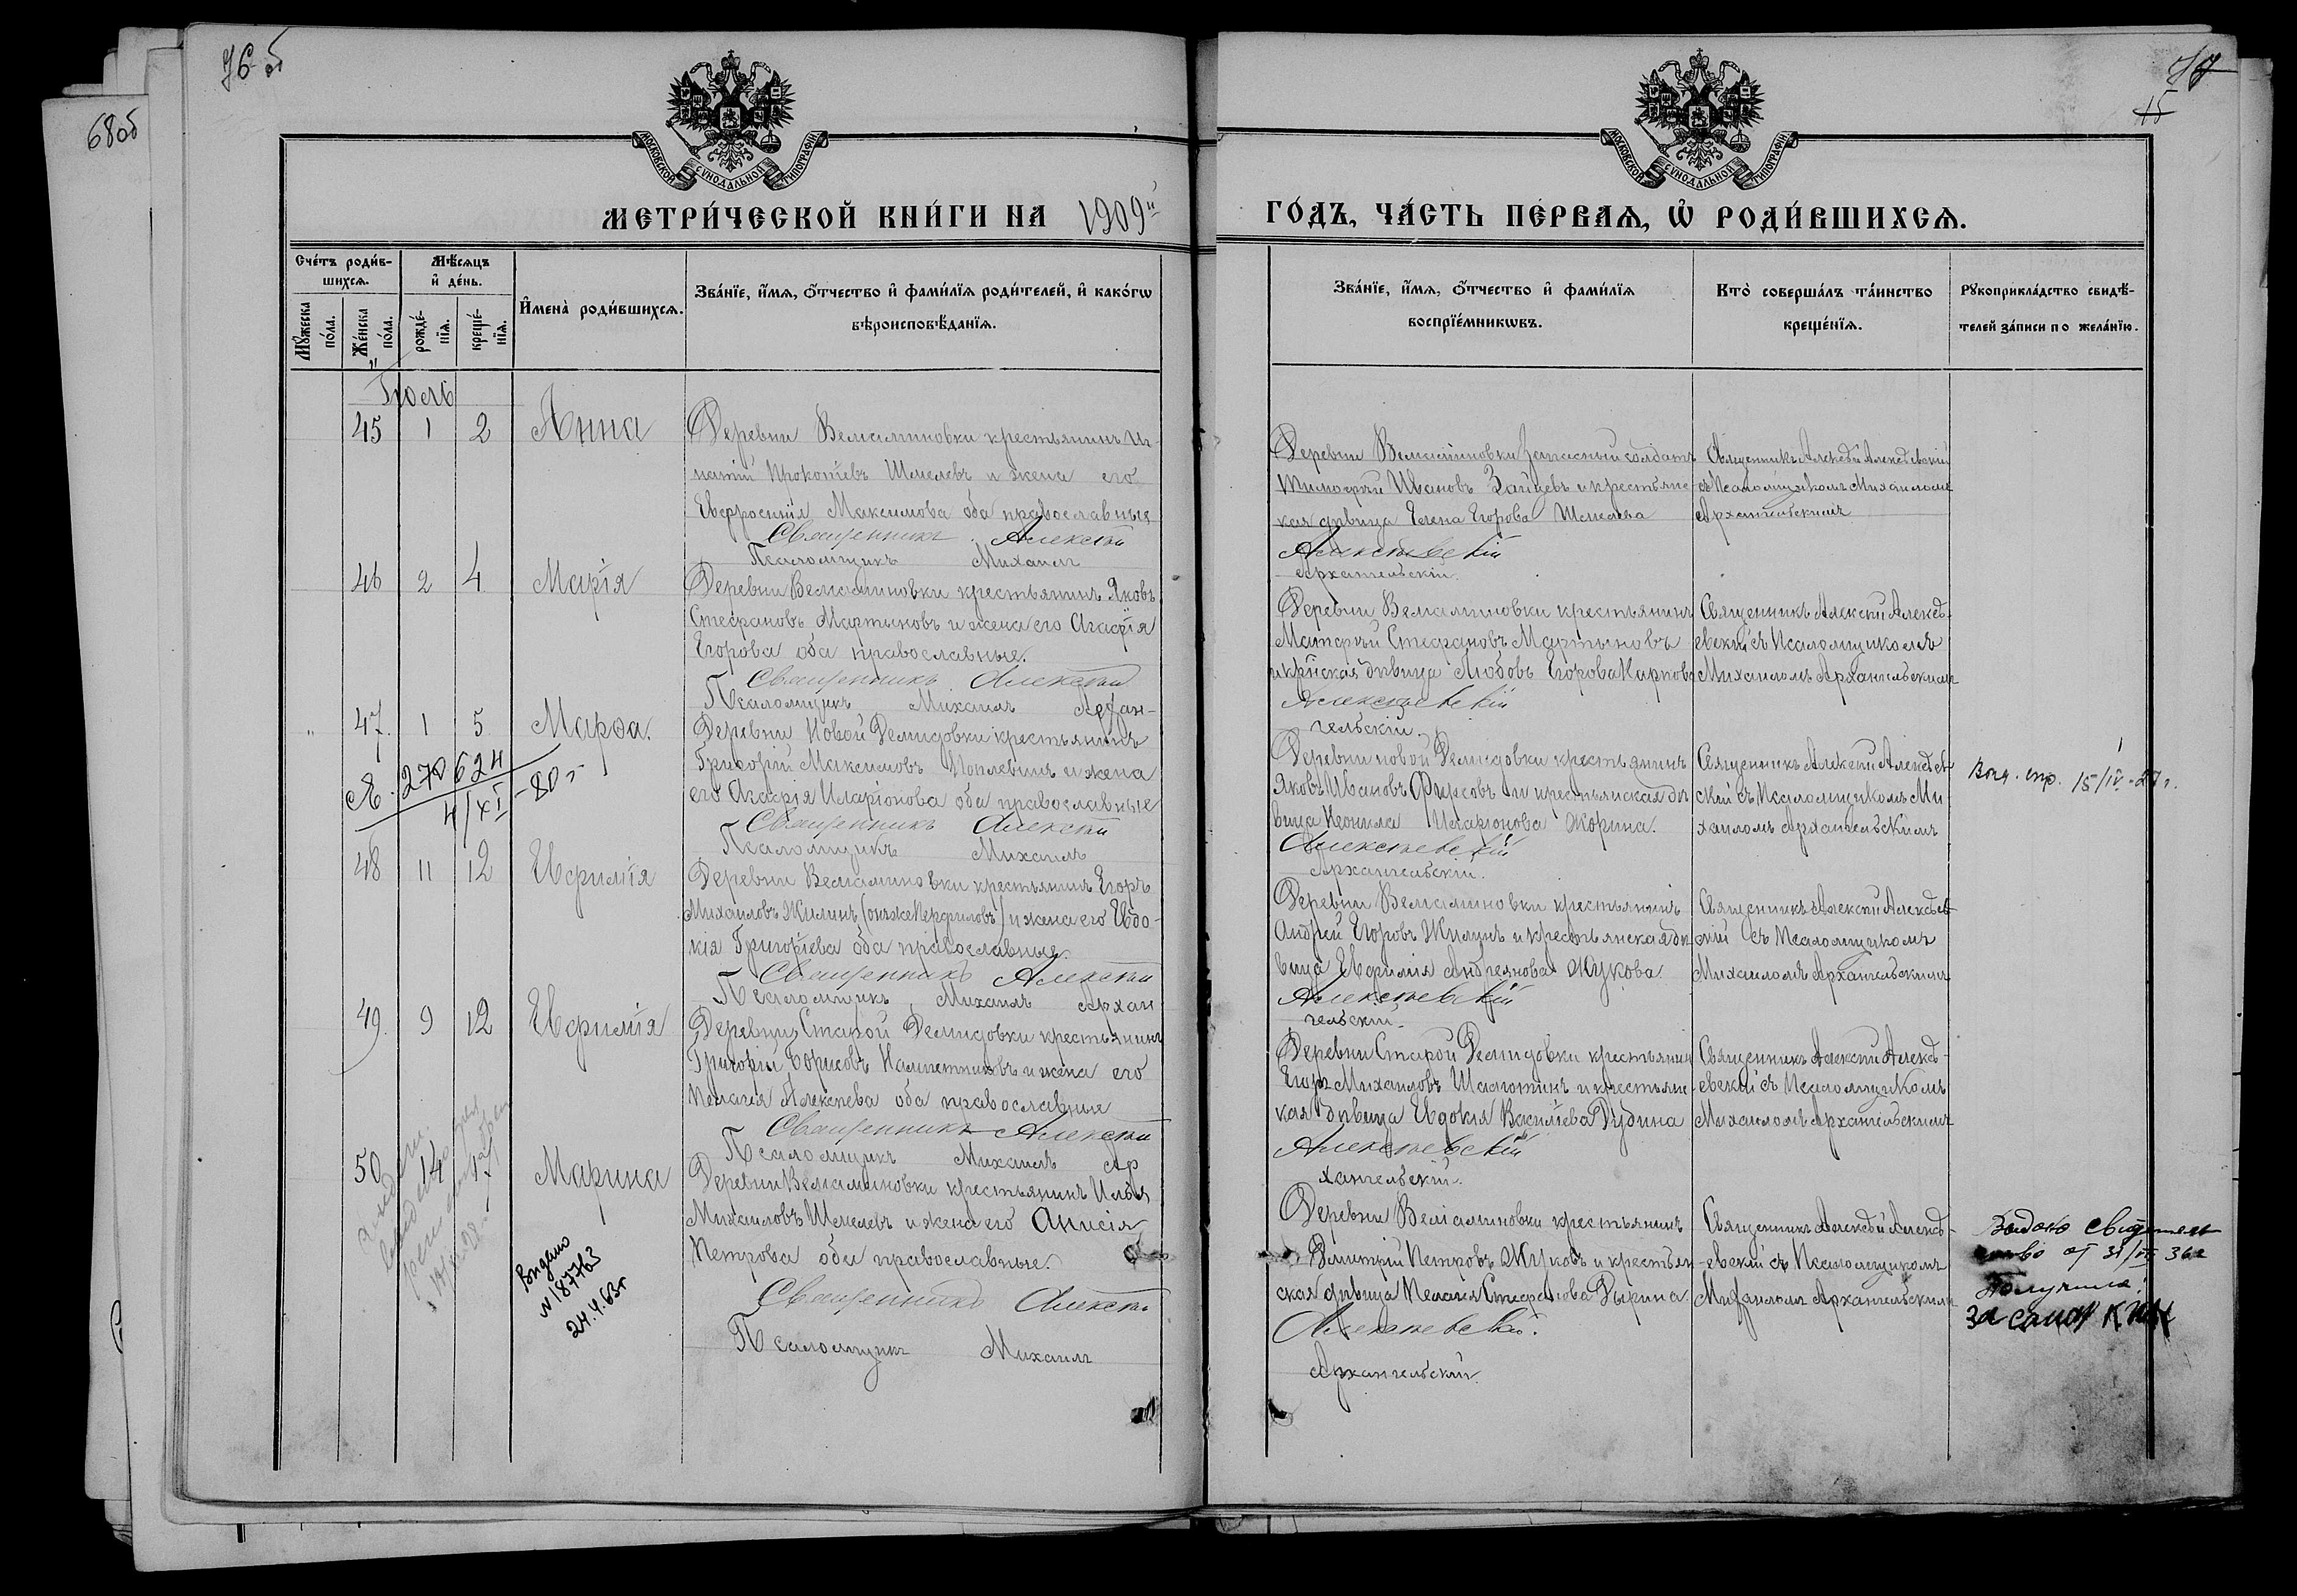 76 об
68 об
77
15
МОСКОВСКОЙ СУНОДАЛЬНОЙ ТИПОГРАФІИ
МОСКОВСКОЙ СУНОДАЛЬНОЙ ТИПОГРАФІИ
МЕТРИ́ЧЕСКОЙ КНИ́ГИ НА 1909й
ГО́ДЪ, ЧА́СТЬ ПЕ́РВАѦ, Ѡ҆ РОДИ́ВШИХСѦ.
Сче́тъ роди́в-
шихсѧ.
Мꙋ́жеска по́ла.
Же́нска по́ла.
Мѣ́сѧцъ и҆ де́нь.
рожде́-нїѧ.
креще́-нїѧ.
И҆мена̀ роди́вшихсѧ.
Зва́нїе, и҆́мѧ, ѻ҆́тчество и҆ фами́лїѧ роди́телей, и҆ како́гѡ
вѣроисповѣ́данїѧ.
Зва́нїе, и҆́мѧ, ѻ҆́тчество и҆ фами́лїѧ
воспрїе́мникѡвъ.
Кто̀ соверша́лъ та́инство
креще́нїѧ.
Рꙋкоприкла́дство свидѣ́-
телей за́писи по жела́нїю.
Іюль
45 1 2 Анна
Деревни Вельяминовки крестьянинъ Иг-
натій Прокопіевъ Шмелевъ и жена его
Евфросинія Максимова оба православные
Священникъ Алексѣй
Псаломщикъ Михаилъ
Деревни Вельяминовки запасный солдатъ
Тимофей Ивановъ Зайцевъ и крестьянс
кая дѣвица Елена Егорова Шмелева
Алексѣевскій
Архангельскій.
Священникъ Алексѣй Алексѣевскій
съ Псаломщикомъ Михаиломъ
Архангельскимъ
46 2 4 Марія
Деревни Вельяминовки крестьянинъ Яковъ
Стефановъ Мартыновъ и жена его Агафія
Егорова оба православные.
Священникъ Алексѣй
Псаломщикъ Михаилъ Архан-
Деревни Вельяминовки крестьянинъ
Матфей Стефановъ Мартыновъ
и кр̃нская дѣвица Любовь Егорова Карпова
Алексѣевскій
гельскій.
Священникъ Алексѣй Алексѣ-
евскій съ Псаломщикомъ
Михаиломъ Архангельскимъ
47. 1 5 Марѳа.
Деревни Новой Демидовки крестьянинъ
Григорій Максимовъ и жена
его Агафія Иларіонова оба православные
Священникъ Алексѣй
Псаломщикъ Михаилъ
Деревни новой Демидовки крестьянинъ
Яковъ Ивановъ Фирсовъ и крестьянская дѣ
вица Неонила Иларіонова Жорина.
Алексѣевскій
Архангельскій.
Священникъ Алексѣй Алексѣев-
скій съ Псаломщикомъ Ми-
хаиломъ Архангельскимъ
Выд. спр. 15/IV-27 г.
270624
4/XI-80 г
48 11 12 Евфимія
Деревни Вельяминовки крестьянинъ Егоръ
Михаиловъ Жилинъ (онъ же Перфиловъ) и жена его Евдо-
кія Григоріева оба православные.
Священникъ Алексѣй
Псаломщикъ Михаилъ Архан
Деревни Вельяминовки крестьянинъ
Андрей Егоровъ Жилинъ и крестьянская дѣ
вица Евфимія Андреянова Жукова
Алексѣевскій
гельскій.
Священникъ Алексѣй Алексѣев-
скій съ Псаломщикомъ
Михаиломъ Архангельскимъ
49. 9 12 Евфимія
Деревни Старой Демидовки крестьянинъ
Григорій Борисовъ и жена его
Пелагія Алексѣева оба православные
Священникъ Алексѣй
Псаломщикъ Михаилъ Ар
Деревни Старой Демидовки крестьянин
Егоръ Михаиловъ и крестьянс
кая дѣвица Евдокія Василіева Дудина
Алексѣевскій
хангельскій.
Священникъ Алексѣй Алексѣ-
евскій съ Псаломщикомъ
Михаиломъ Архангельскимъ
50 14 17 Марина
Деревни Вельяминовки крестьянинъ Илья
Михаиловъ Шмелевъ и жена его Анисія
Петрова оба православные.
Священникъ Алексѣй
Псаломщикъ Михаилъ
Деревни Вельяминовки крестьянинъ
Димитрій Петровъ Жуковъ и крестьян
ская дѣвица Пелагія Стефанова Дырина
Алексѣевскій.
Архангельскій.
Священникъ Алексѣй Алексѣ-
евскій съ Псаломщикомъ
Михаиломъ Архангельскимъ
Выдано свидетель
ство от 31/ 36г
Получила:
Выдано
N 187763
24.4.63г